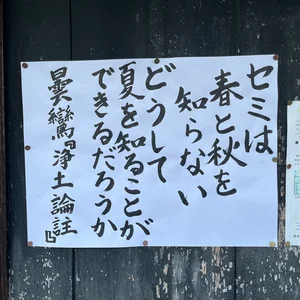 セミは
春と秋を
知らない
どうして
夏を知ることが
できるだろうか
曇鸞『浄土論註』